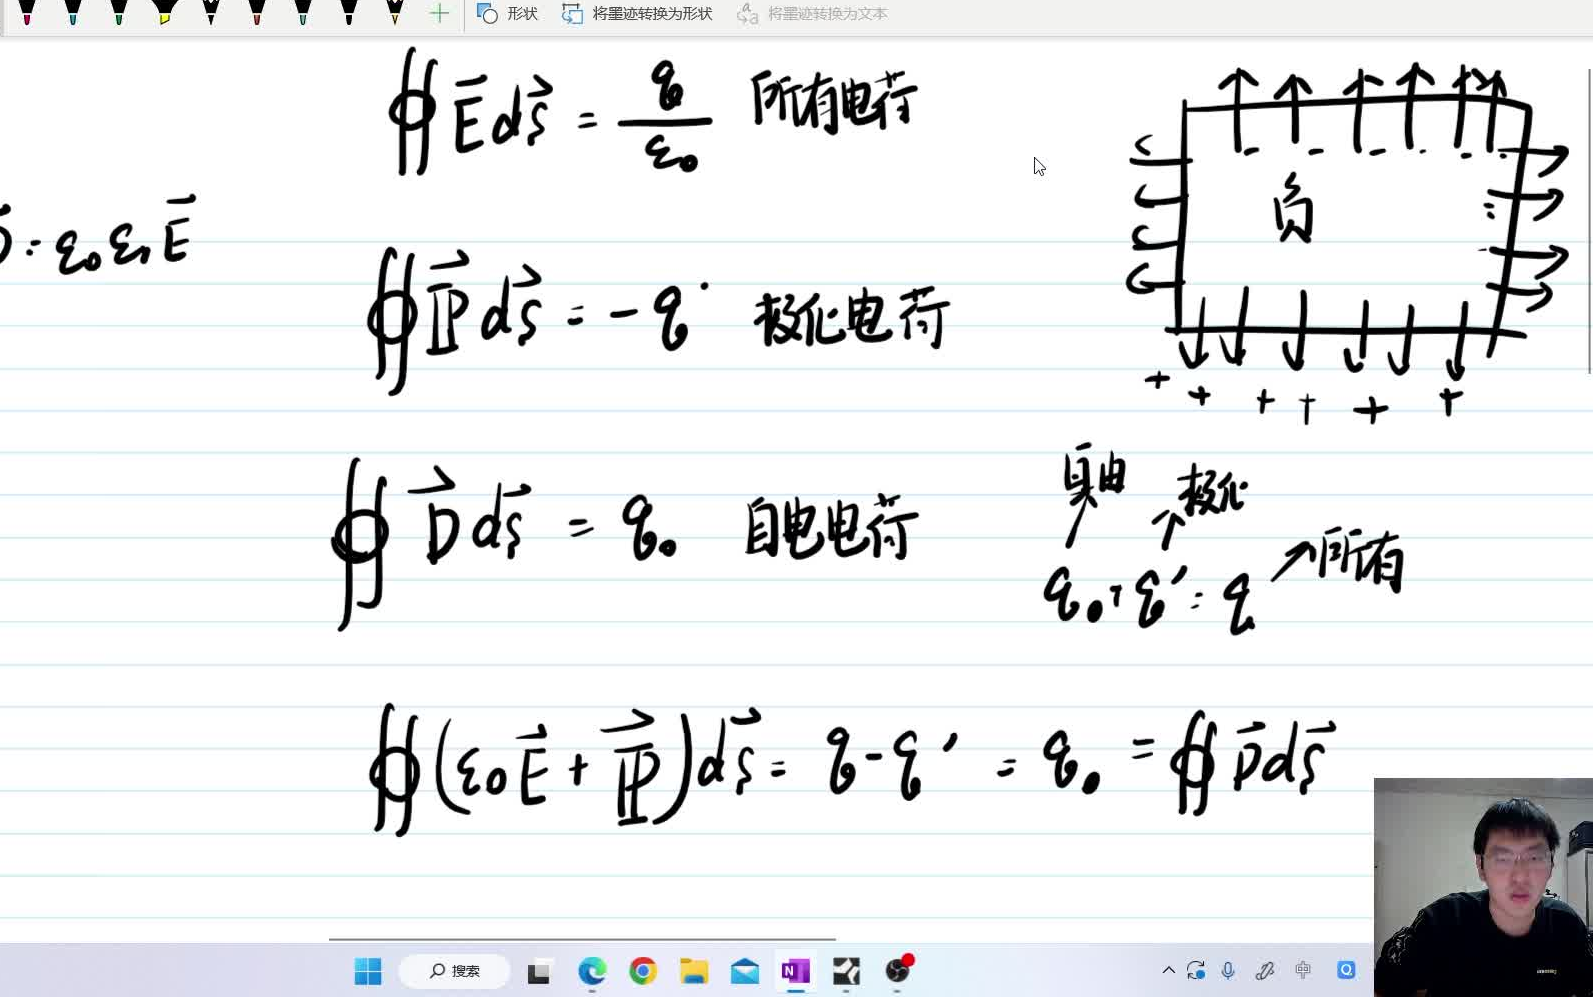 形状 将墨迹转换为形状 将墨迹转换为文本
∯ E⃗ dS⃗ = q/ε₀ 所有电荷
D⃗ = ε₀ εr E⃗
负
∯ P⃗ dS⃗ = - q' 极化电荷
+ + + + + +
∯ D⃗ dS⃗ = q₀ 自电电荷
自由 极化
q₀ + q' = q 所有
∯ (ε₀ E⃗ + P⃗) dS⃗ = q - q' = q₀ = ∯ D⃗ dS⃗
搜索 中